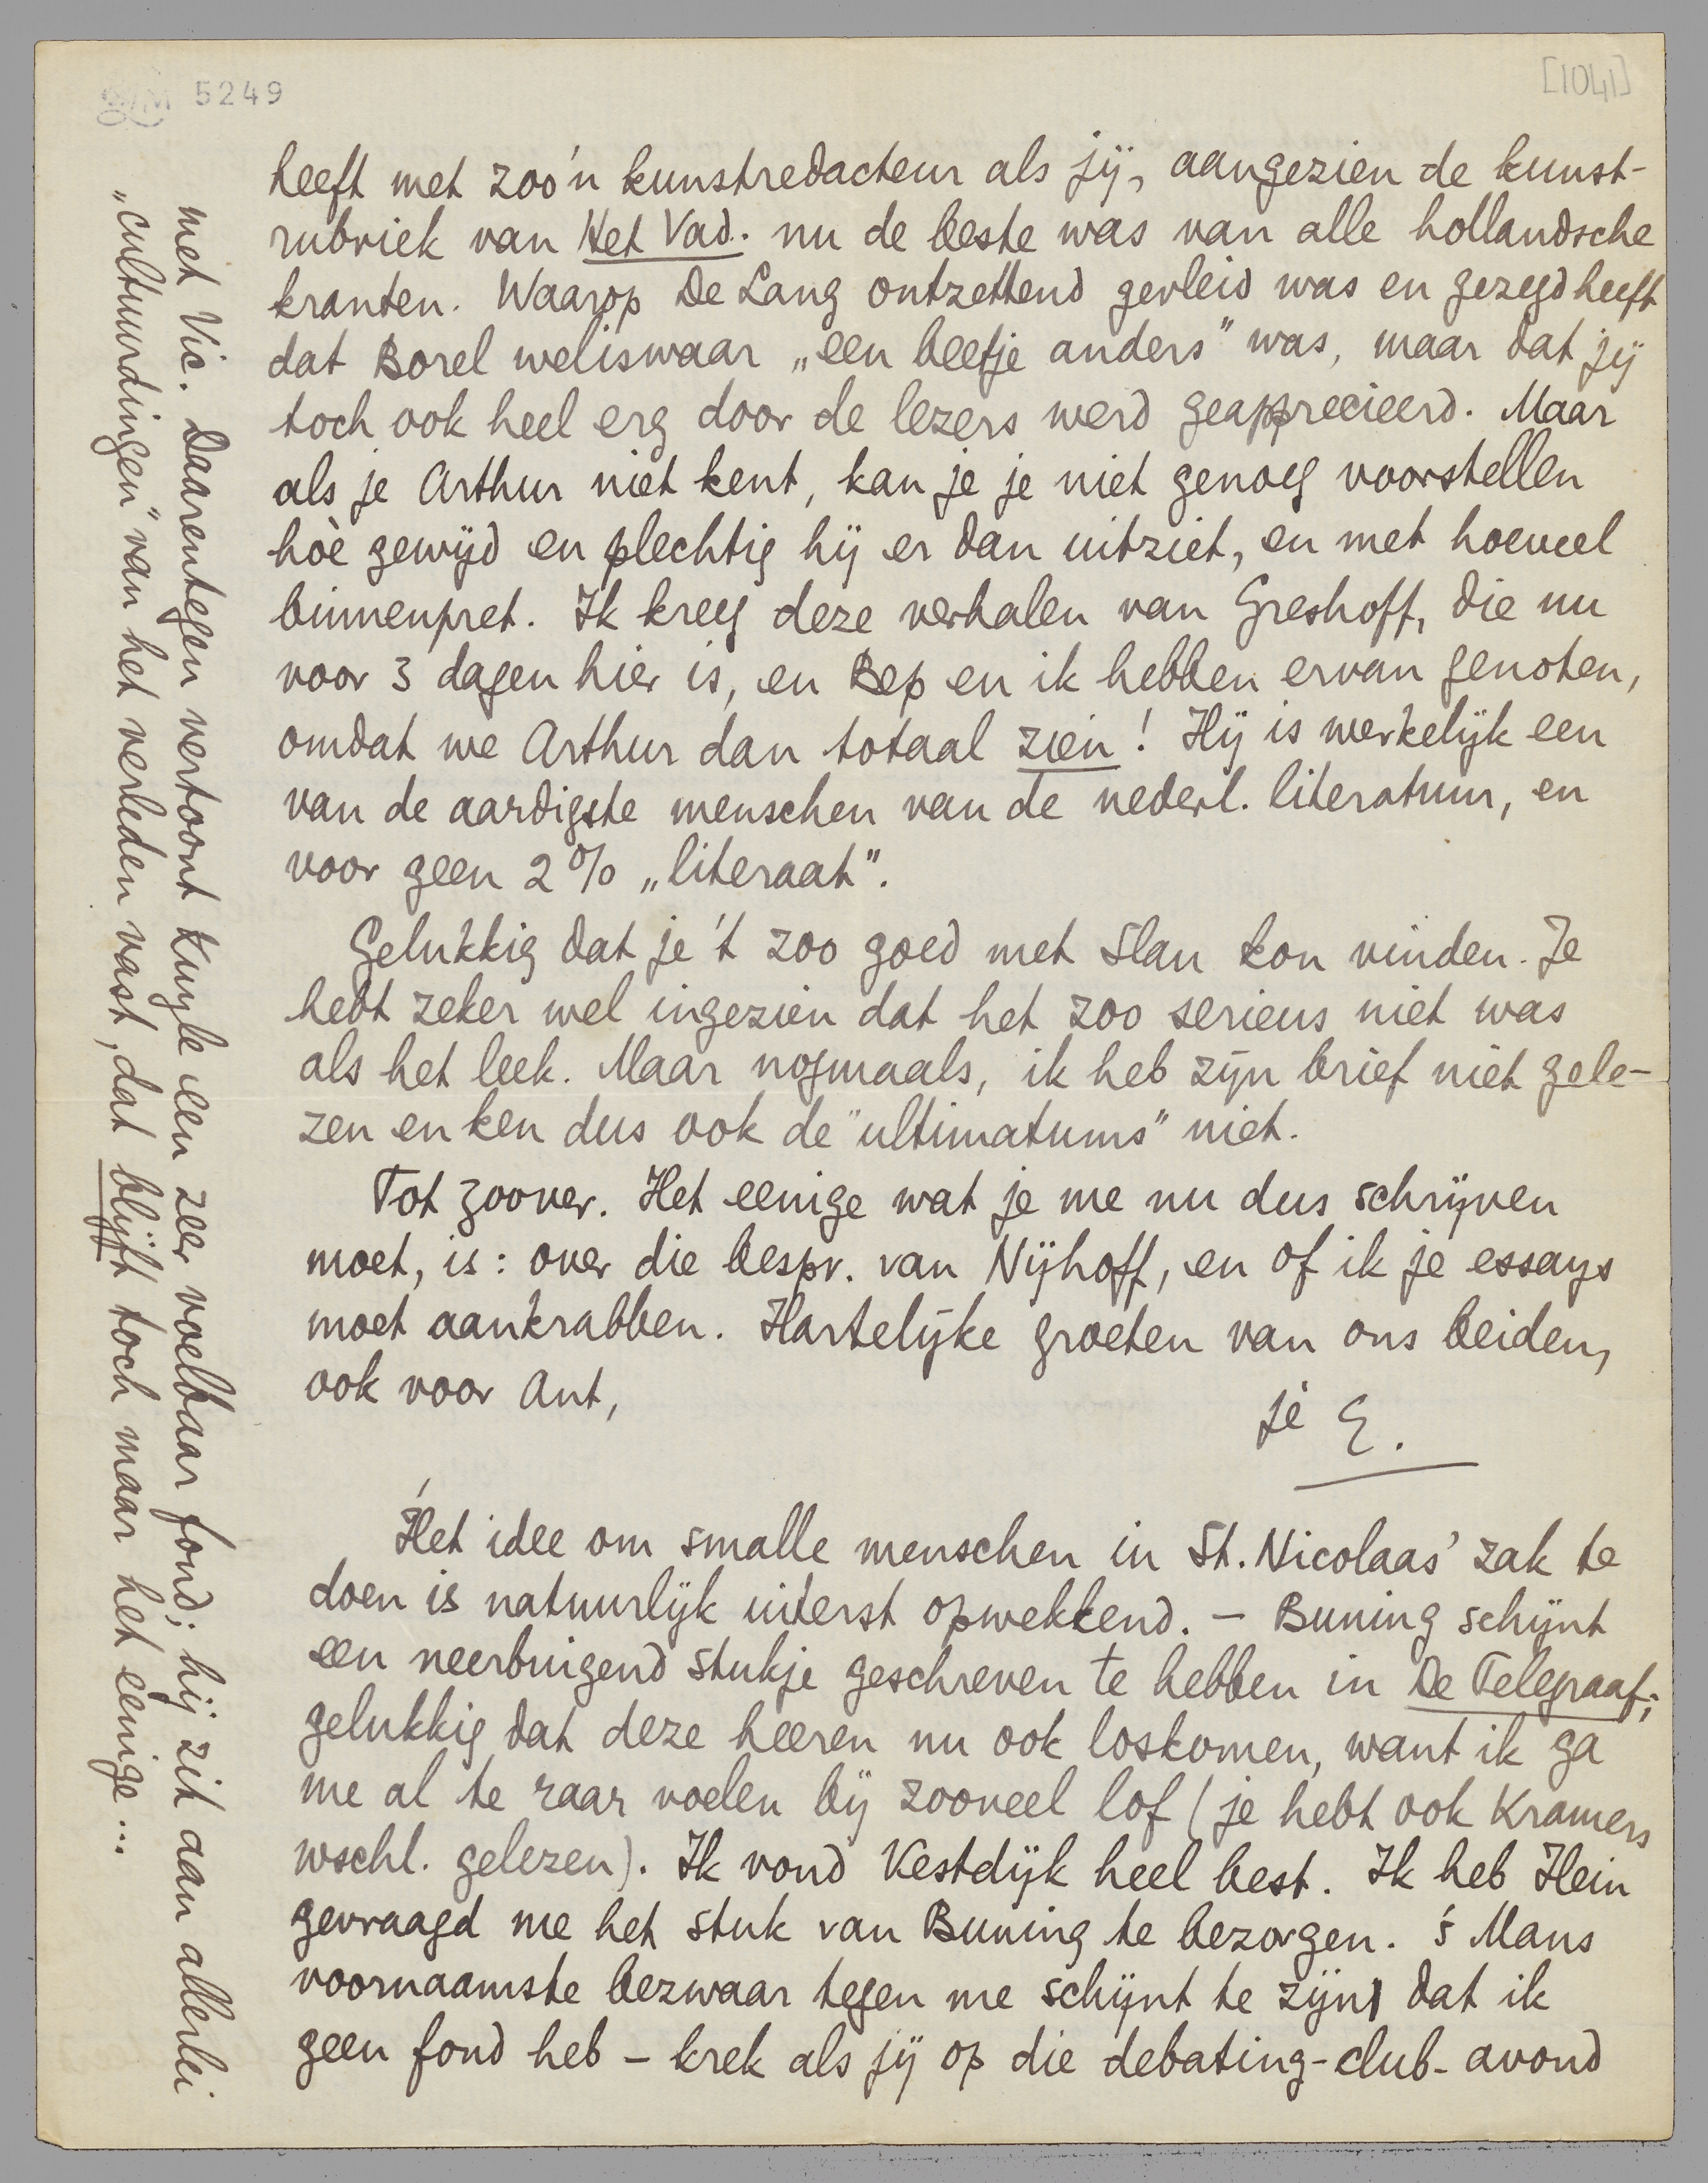 5249
[1041]
heeft met zoo'n kunstredacteur als jij, aangezien de kunst-
rubriek van Het Vad. nu de beste was van alle hollandsche
kranten. Waarop De Lang ontzettend gevleid was en gezegd heeft
dat Borel weliswaar „een beetje anders" was, maar dat jij
toch ook heel erg door de lezers werd geapprecieerd. Maar
als je Arthur niet kent, kan je je niet genoeg voorstellen
hoè gewijd en plechtig hij er dan uitziet, en met hoeveel
binnenpret. Ik kreeg deze verhalen van Greshoff, die nu
voor 3 dagen hier is, en Bep en ik hebben ervan genoten,
omdat we Arthur dan totaal zien! Hij is werkelijk een
van de aardigste menschen van de nederl. literatuur, en
voor geen 2% „literaat".
Gelukkig dat je 't zoo goed met Slau kon vinden. Je
hebt zeker wel ingezien dat het zoo serieus niet was
als het leek. Maar nogmaals, ik heb zijn brief niet gele-
zen en ken dus ook de "ultimatums" niet.
Tot zoover. Het eenige wat je me nu dus schrijven
moet, is: over die bespr. van Nijhoff, en of ik je essays
moet aankrabben. Hartelijke groeten van ons beiden,
ook voor Ant,
je E.
Het idee om smalle menschen in St. Nicolaas' zak te
doen is natuurlijk uiterst opwekkend. – Buning schijnt
een neerbuigend stukje geschreven te hebben in De Telegraaf;
gelukkig dat deze heeren nu ook loskomen, want ik ga
me al te raar voelen bij zooveel lof (je hebt ook Kramers
wschl. gelezen). Ik vond Vestdijk heel best. Ik heb Hein
gevraagd me het stuk van Buning te bezorgen. 's Mans
voornaamste bezwaar tegen me schijnt te zijn, dat ik
geen fond heb – krek als jij op die debating-club-avond
met Vic. Daarentegen vertoont Kuyle een zeer voelbaar fond; hij zit aan allerlei
„cultuurdingen" van het verleden vast, dat blijft toch maar het eenige...